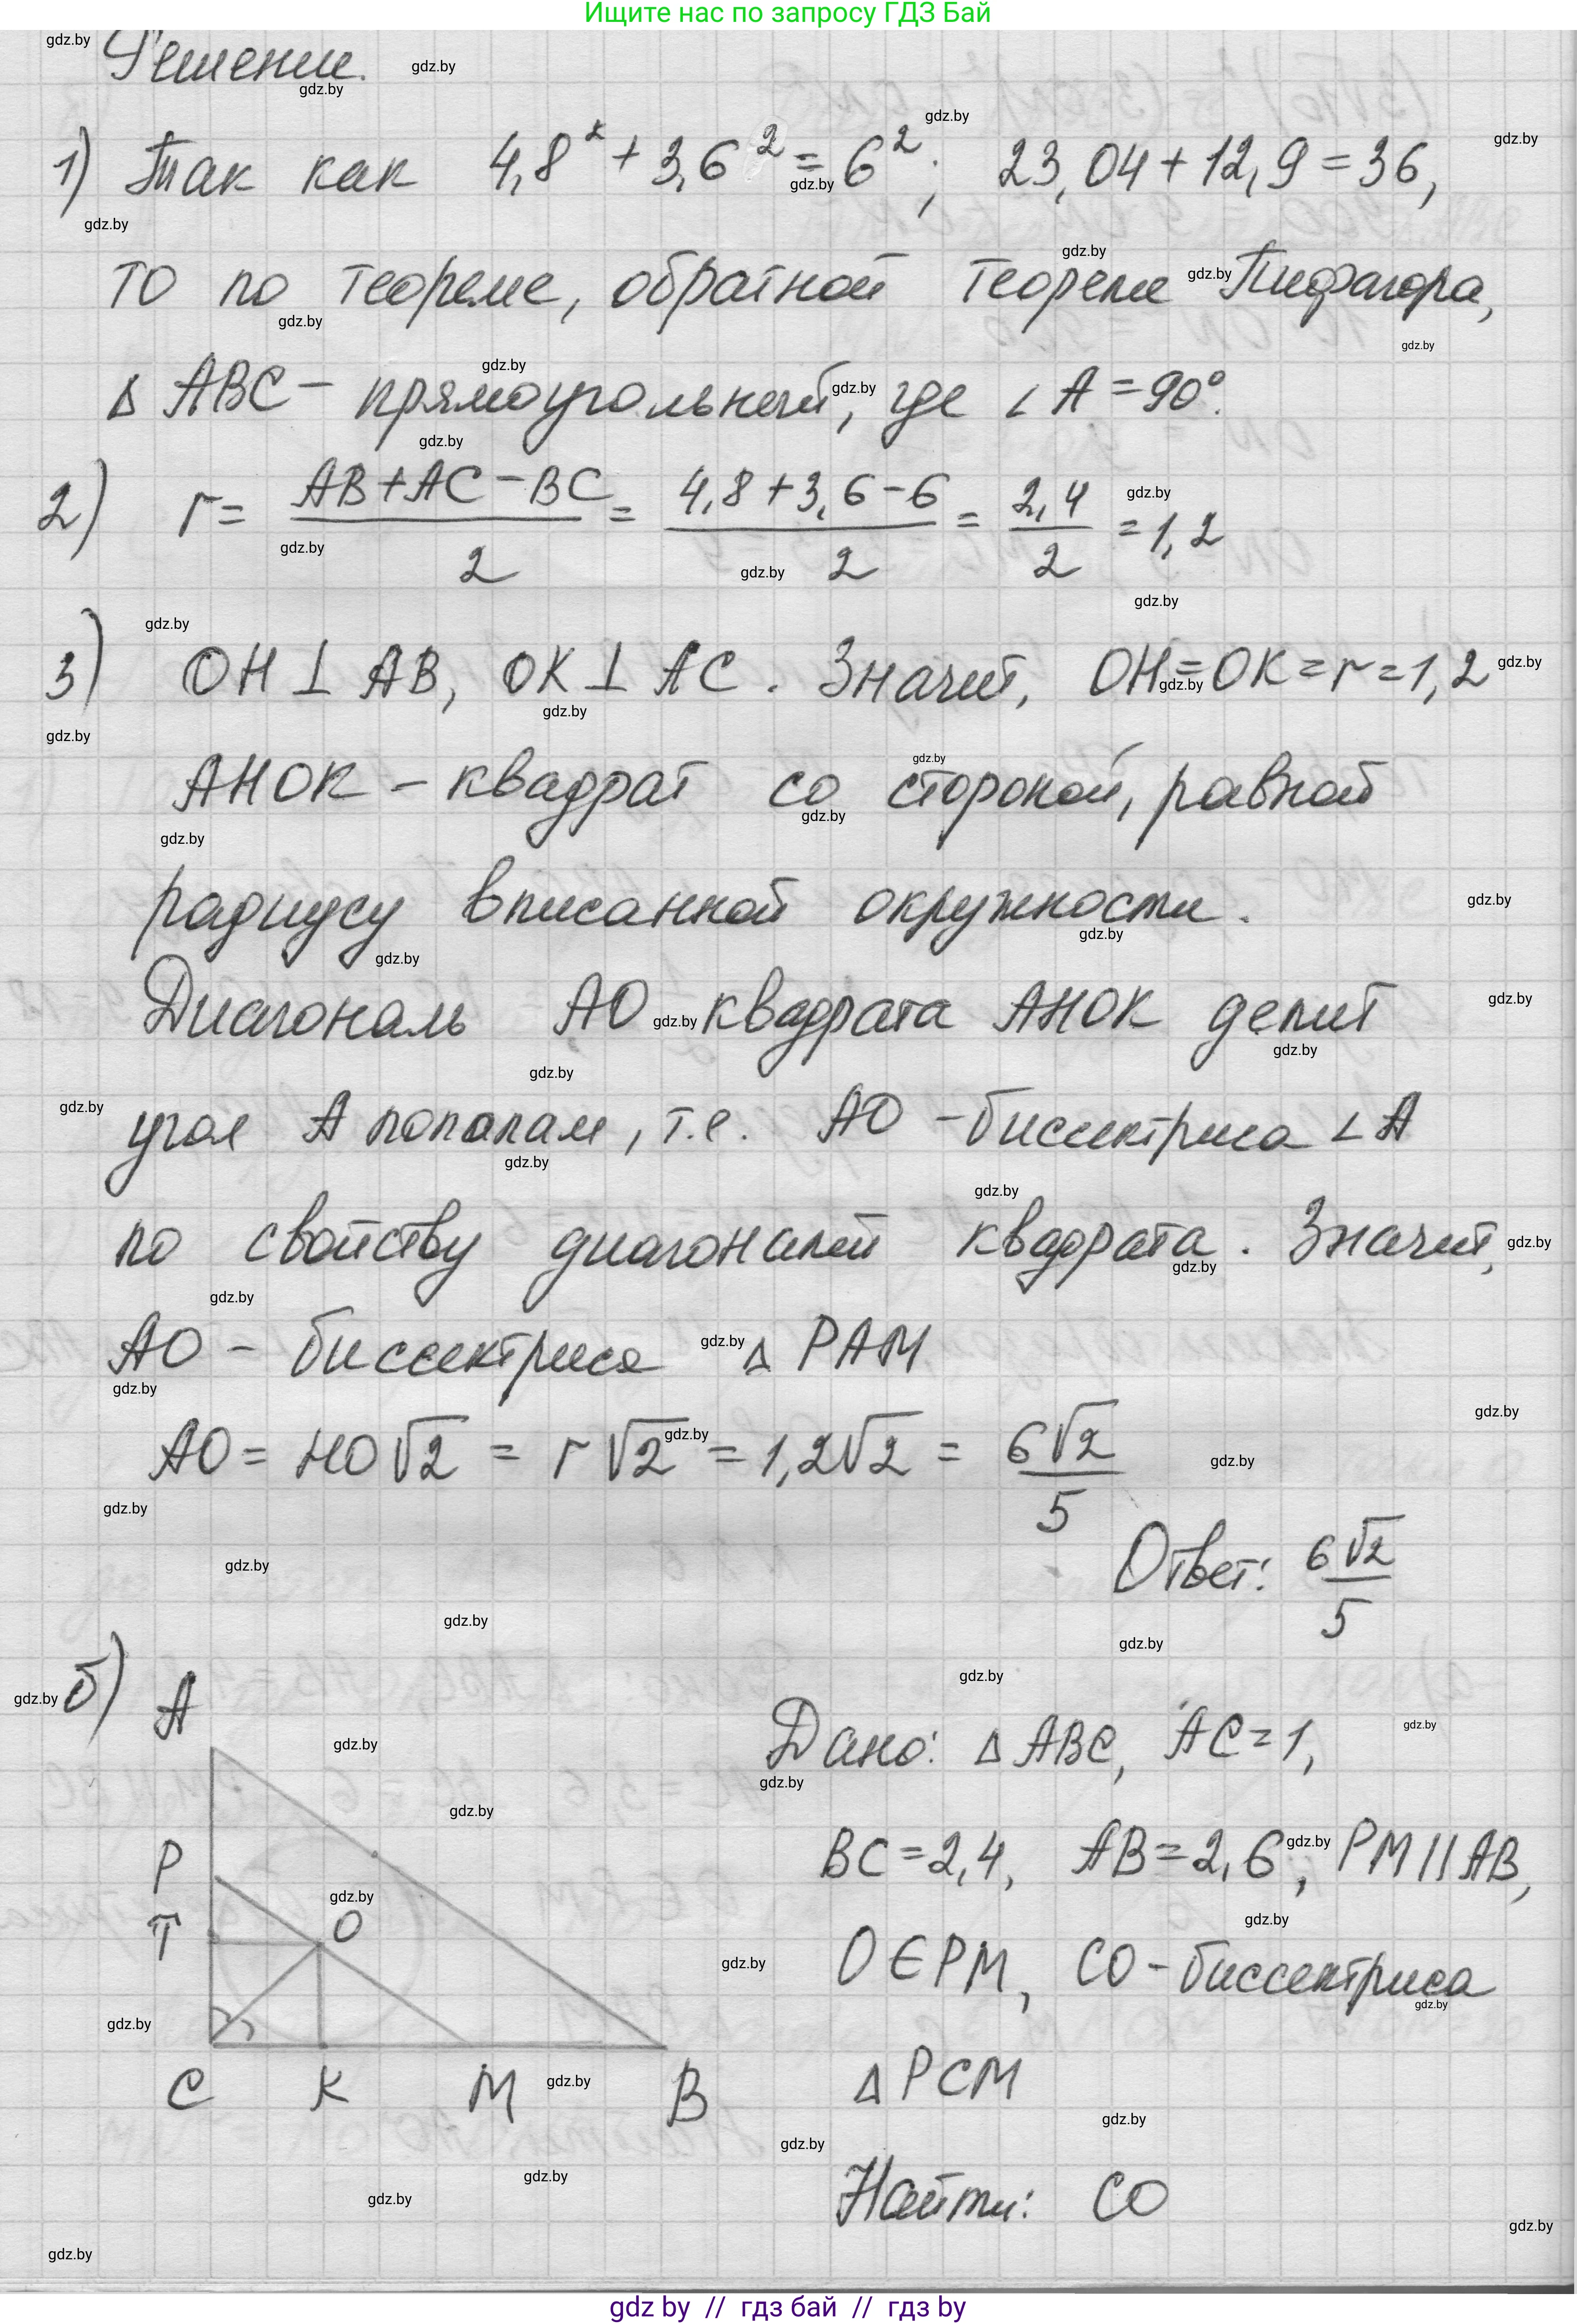 Ищите нас по запросу ГДЗ Бай
Решение.
1) Так как 4,8² + 3,6² = 6²; 23,04 + 12,9 = 36,
то по теореме, обратной теореме Пифагора,
Δ ABC – прямоугольный, где ∠ A = 90°.
2) r = (AB + AC – BC)/2 = (4,8 + 3,6 – 6)/2 = 2,4/2 = 1,2
3) OH ⊥ AB, OK ⊥ AC. Значит, OH = OK = r = 1,2
AHOK – квадрат со стороной, равной
радиусу вписанной окружности.
Диагональ AO квадрата AHOK делит
угол A пополам, т.е. AO – биссектриса ∠ A
по свойству диагоналей квадрата. Значит,
AO – биссектриса Δ PAM
AO = HO√2 = r√2 = 1,2√2 = 6√2/5
Ответ: 6√2/5
б) A
P
T
O
C K M B
Дано: Δ ABC, AC = 1,
BC = 2,4, AB = 2,6; PM || AB,
O ∈ PM, CO – биссектриса
Δ PCM
Найти: CO
gdz by // гдз бай // гдз by